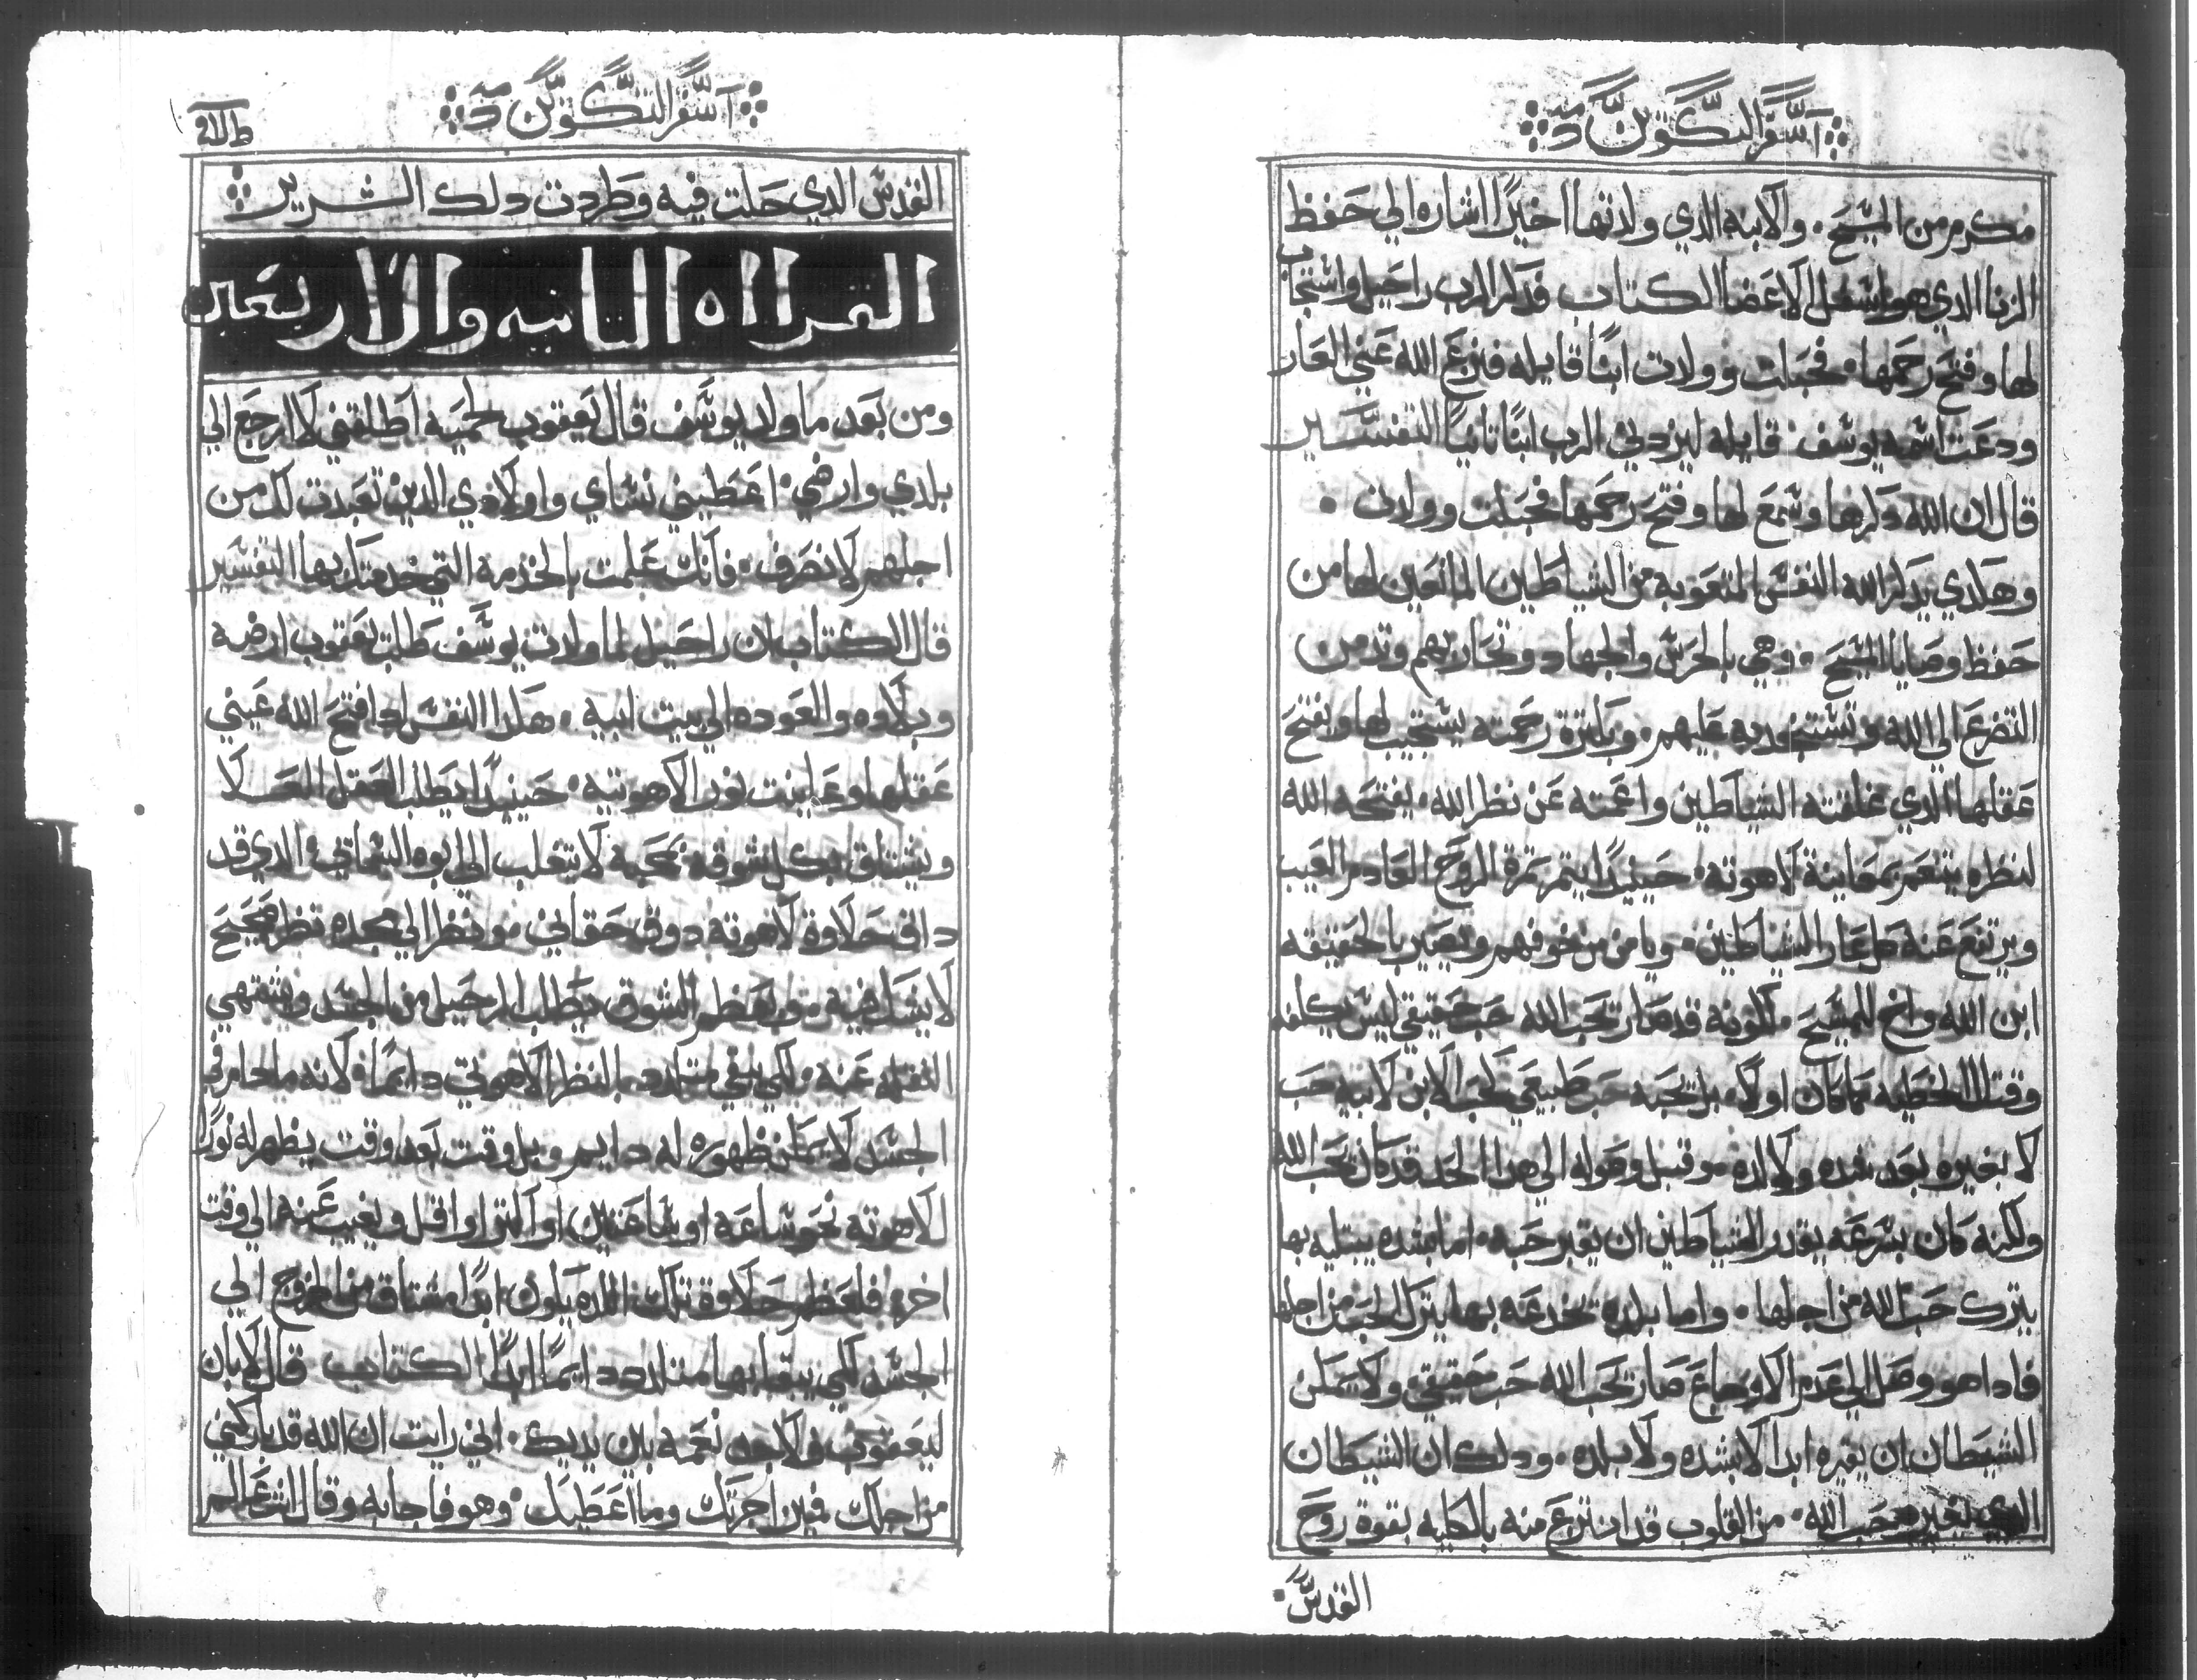 آسفر التكوين
مكرم من المسيح ٠ والابنه الدي ولدتها اخيرًا اشاره الي حفظ
الزنا الدي هو اسفل الاعضا الكتاب فدكر الرب راحيل واستجاب
لها وفتح رحمها ٠ فحبلت وولدت ابنًا قايله فنزع الله عني العار
ودعت اسمه يوسف ٠ قايله ليزدني الرب ابنًا تانيًا التفسير
قال ان الله دكرها وسمع لها وفتح رحمها فحبلت وولدت ٠
وهكدي يدكر الله النفس المتعوبه من الشياطين المانعين لها من
حفظ وصايا المسيح ٠ وهي بالحرس والجهاد وتحاربهم وتدمن
التضرع الي الله وتستنجد به عليهم ٠ وبكترة رحمته يستجيب لها ويفتح
عقلها الدي غلقته الشياطين واعمته عن نظر الله ٠ يفتحه الله
لنظره يتنعم بمعاينة لاهوته ٠ حينيدًا يتم تمرة الروح العادم العيب
ويرتفع عنه كل عار الشياطين ٠ ويامن من خوفهم ويصير بالحقيقه
ابن الله واخ للمسيح ٠ لكونه قد صار يحب الله حب حقيقي ليس بكلفه
وقتال الخطيه كما كان اولًا ٠ بل تحبه حب طبيعي كحب الابن لابيه حب
لا بغيره بعد شده ولا لده ٠ وقبل وصوله الي هدا الحد قد كان يحب الله
ولكنه كان بسرعه يقدر الشياطين ان يغير حبه ٠ اما بشده يبتليه بها
يترك حب الله من اجلها ٠ واما بلده يخدعه بها يترك الحب من اجلها
فادا هو وصل الي عدم الاوجاع صار يحب الله حب حقيقي ولا يمكن
الشيطان ان يغيره ابدا لا بشده ولا بلده ٠ ودلك ان الشيطان
الدي يغير حب الله ٠ من القلوب قد انتزع منه بالكليه بقوة روح
القدس ٠
آسفر التكوين
القدس الدي حلت فيه وطردت دلك الشرير
القرااه التانيه والاربعين
ومن بعد ما ولد يوسف قال يعقوب لحميه اطلقني لاارجع الي
بلدي وارضي ٠ اعطيني نساي واولادي الدين تعبدت لك من
اجلهم لانصرف ٠ فانك علمت بالخدمة التي خدمتك بها التفسير
قال الكتاب ان راحيل لما ولدت يوسف طلب يعقوب ارضه
وبلاده والعوده الي بيت ابيه ٠ هكدا النفس ادا فتح الله عيني
عقلها وعاينت نور لاهوتيه ٠ حينيدًا يطلب العقل العلا
ويشتاق بكل شوقه بمحبه لا يتغلب الي ابوه السماني ٠ الدي قد
داق حلاوة لاهوته دوق حقاني ٠ ونظر الي مجده نظر صحيح
لا يشك فيه ٠ وبعظم الشوق يطلب الرحيل من الجسد ويشتهي
النقله عنه ٠ لكي يبقي متلدد بالنظر الاهوتي دايمًا ٠ لانه مادام في
الجسد لا يمكن ظهوره له دايم ٠ بل وقت بعد وقت يظهر له نور
لاهوته نحو ساعه او ساعتين او اكتر او اقل ويغيب عنه الي وقت
اخر ٠ فلعظم حلاوة تلك اللده يكون ابدًا مشتاق من الخروج الي
الجسد لكي يبقا بها متلدد دايمًا ابدًا الكتاب قال لابان
ليعقوب ٠ لاجد نعمه بين يديك ٠ اني رايت ان الله قد باركني
من اجلك فميز اجرتك وما اعطيك ٠ وهو فاجابه وقال انت عالم